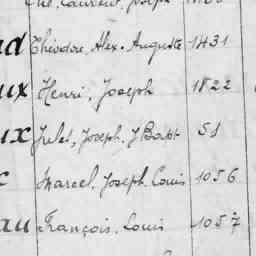 Laurent, Joseph
ad Théodore, Alex. Auguste 1431
ux Henri, Joseph 1822
ux Jules, Joseph, J Bapt 51
Marcel, Joseph, Louis 1056
au François, Louis 1057